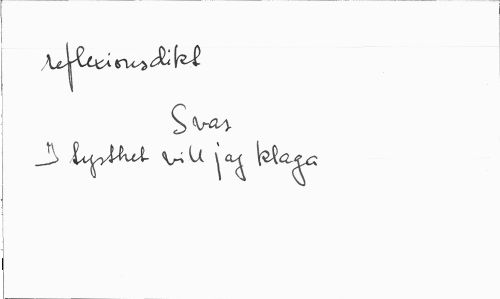 reflexionsdikt
Svar
I tysthet vill jag klaga